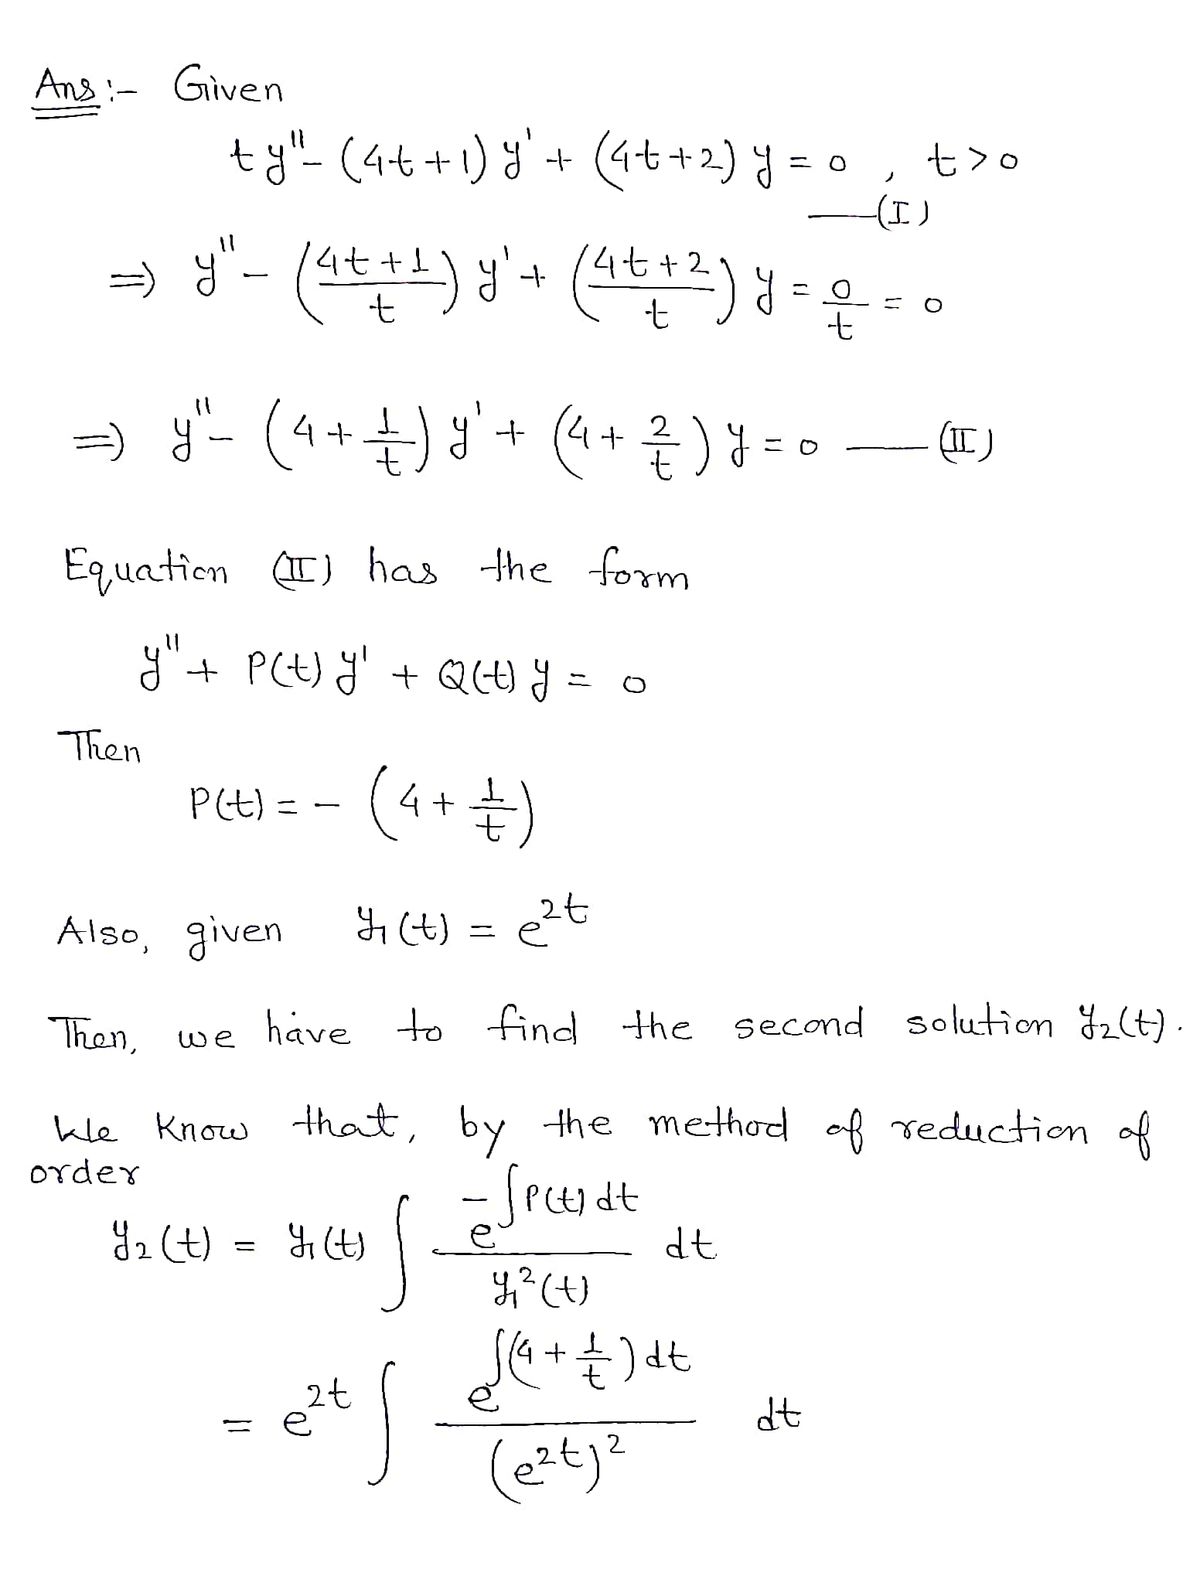 Ans :- Given
t y" - (4t + 1) y' + (4t + 2) y = 0 , t > 0
—(I)
⇒ y" - ((4t + 1)/t) y' + ((4t + 2)/t) y = 0/t = 0
⇒ y" - (4 + 1/t) y' + (4 + 2/t) y = 0 —(II)
Equation (II) has the form
y" + P(t) y' + Q(t) y = 0
Then
P(t) = - (4 + 1/t)
Also, given y₁(t) = e^{2t}
Then, we have to find the second solution y₂(t).
We know that, by the method of reduction of
order
y₂(t) = y₁(t) ∫ e^{-∫P(t) dt} / y₁²(t) dt
= e^{2t} ∫ e^{∫(4 + 1/t) dt} / (e^{2t})² dt